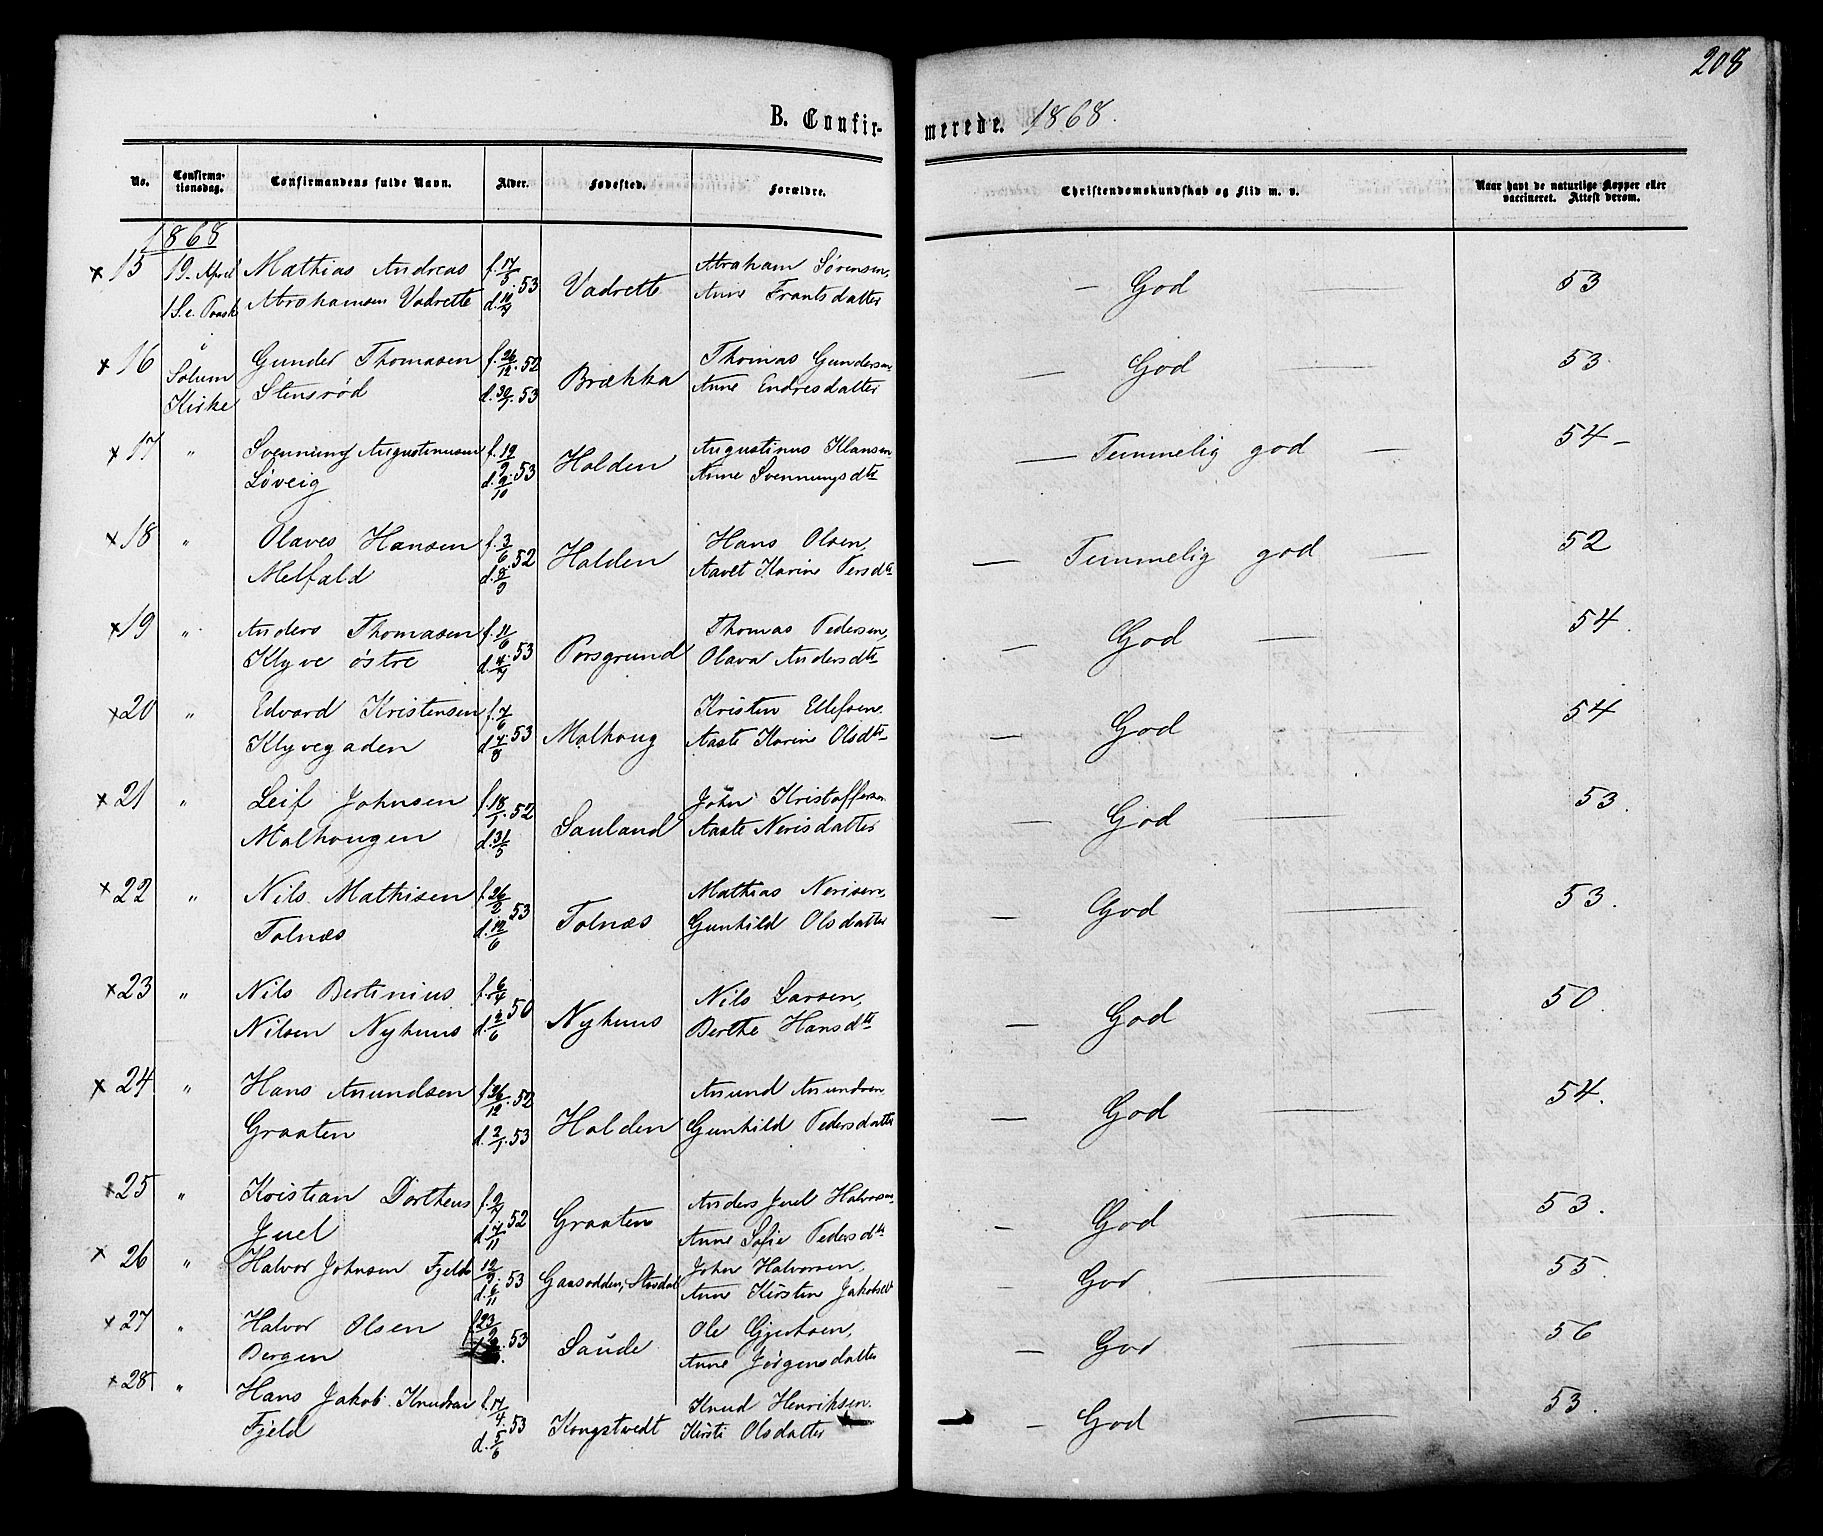 208
B. Confir-
merede. 1868.
No.
Confirma-
tionsdag.
Confirmandens fulde Navn.
Alder.
Fødested.
Forældre.
Christendomskundskab og Flid m. v.
Naar havt de naturlige Kopper eller
vaccineret. Attest derom.
1868
x 15 19. April Mathias Andreas f. 17/5 53 Vadrette Abraham Sørensen, — God — 53
1 S. e. Paask Abrahamsen Vadrette d. Anne Frantsdatter
x 16 Solum Gunder Thomasen f. 26/12 52 Brækka Thomas Gundersen — God — 53.
Kirke Stensrød d. 30/1 53 Anne Endresdatter
x 17 " Svenning Augustinusen f. 19/9 53 Holden Augustinus Klausen — Temmelig god — 54 –
Løveig d. 9/10 Anne Svennungsdtr
x 18 " Olaves Hansen f. 3/6 52 Holden Hans Olsen, — Temmelig god — 52
Melfald d. Aavet Karine Persdtr
x 19 " Anders Thomasen f. 11/6 53 Porsgrund Thomas Pedersen, — God — 54.
Klyve østre d. Olava Andersdtr
x 20 " Edvard Kristensen f. 7/6 53 Molhoug Kristen Ellefsen — God — 54
Klyvegaden d. 7/8 Aaste Karine Olsdtr
x 21 " Leif Johnsen f. 18/1 52 Sauland John Kristoffersen — God — 53.
Molhougen d. 31/5 Aaste Nerisdatter
x 22 " Nils Mathisen f. 26/2 53 Tolnæs Mathias Nerisen, — God — 53.
Tolnæs d. 12/6 Gunhild Olsdatter
x 23 " Nils Bertinius f. 6/4 50 Nyhuus Nils Larsen, — God — 50.
Nilsen Nyhuus d. 2/6 Berthe Hansdtr
x 24 " Hans Amundsen f. 26/12 52 Holden Amund Amundsen — God — 54.
Graaten d. 2/1 53 Gunhild Pedersdatter
x 25 " Kristian Dortheus f. 52 Graaten Anders Juel Halvorsen, — God — 53.
Juel d. 7/11 Anne Sofie Pedersdtr
x 26 " Halvor Johnsen Fjeld 12/9 53 Gaasodden, John Halvorsen, — God — 55.
d. 6/11 Anne Kirstine Jakobsdt
x 27 " Halvor Olsen f. 23/2 53 Saude Ole Gjertsen, — God — 56
Bergen Anne Jørgensdatter
x 28 " Hans Jakob Knudsen f. 17/4 53 Kongstvedt Knud Henriksen — God — 53.
Fjeld d. 5/6 Kirsti Olsdatter